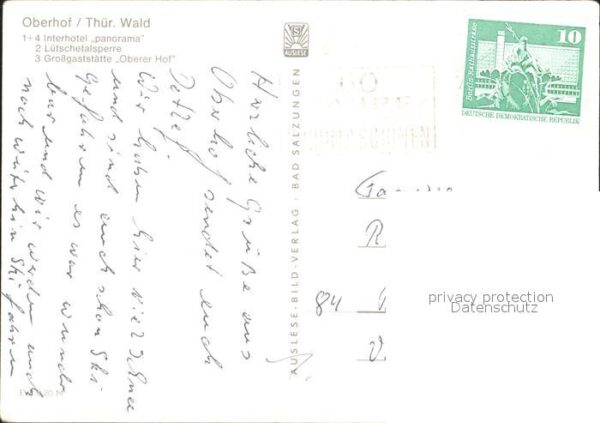 Oberhof / Thür. Wald
1+4 Interhotel „panorama"
2 Lütschetalsperre
3 Großgaststätte „Oberer Hof"
Herzliche Grüße aus
Oberhof sendet euch
Detlef.
Wir haben hier viel Schnee
und sind auch schon Ski
gefahren es war wunder
bar und wir werden auch
noch weiterhin Ski fahren
AUSLESE-BILD-VERLAG · BAD SALZUNGEN
AUSLESE
10
DEUTSCHE DEMOKRATISCHE REPUBLIK
Familie
R
84
privacy protection
Datenschutz